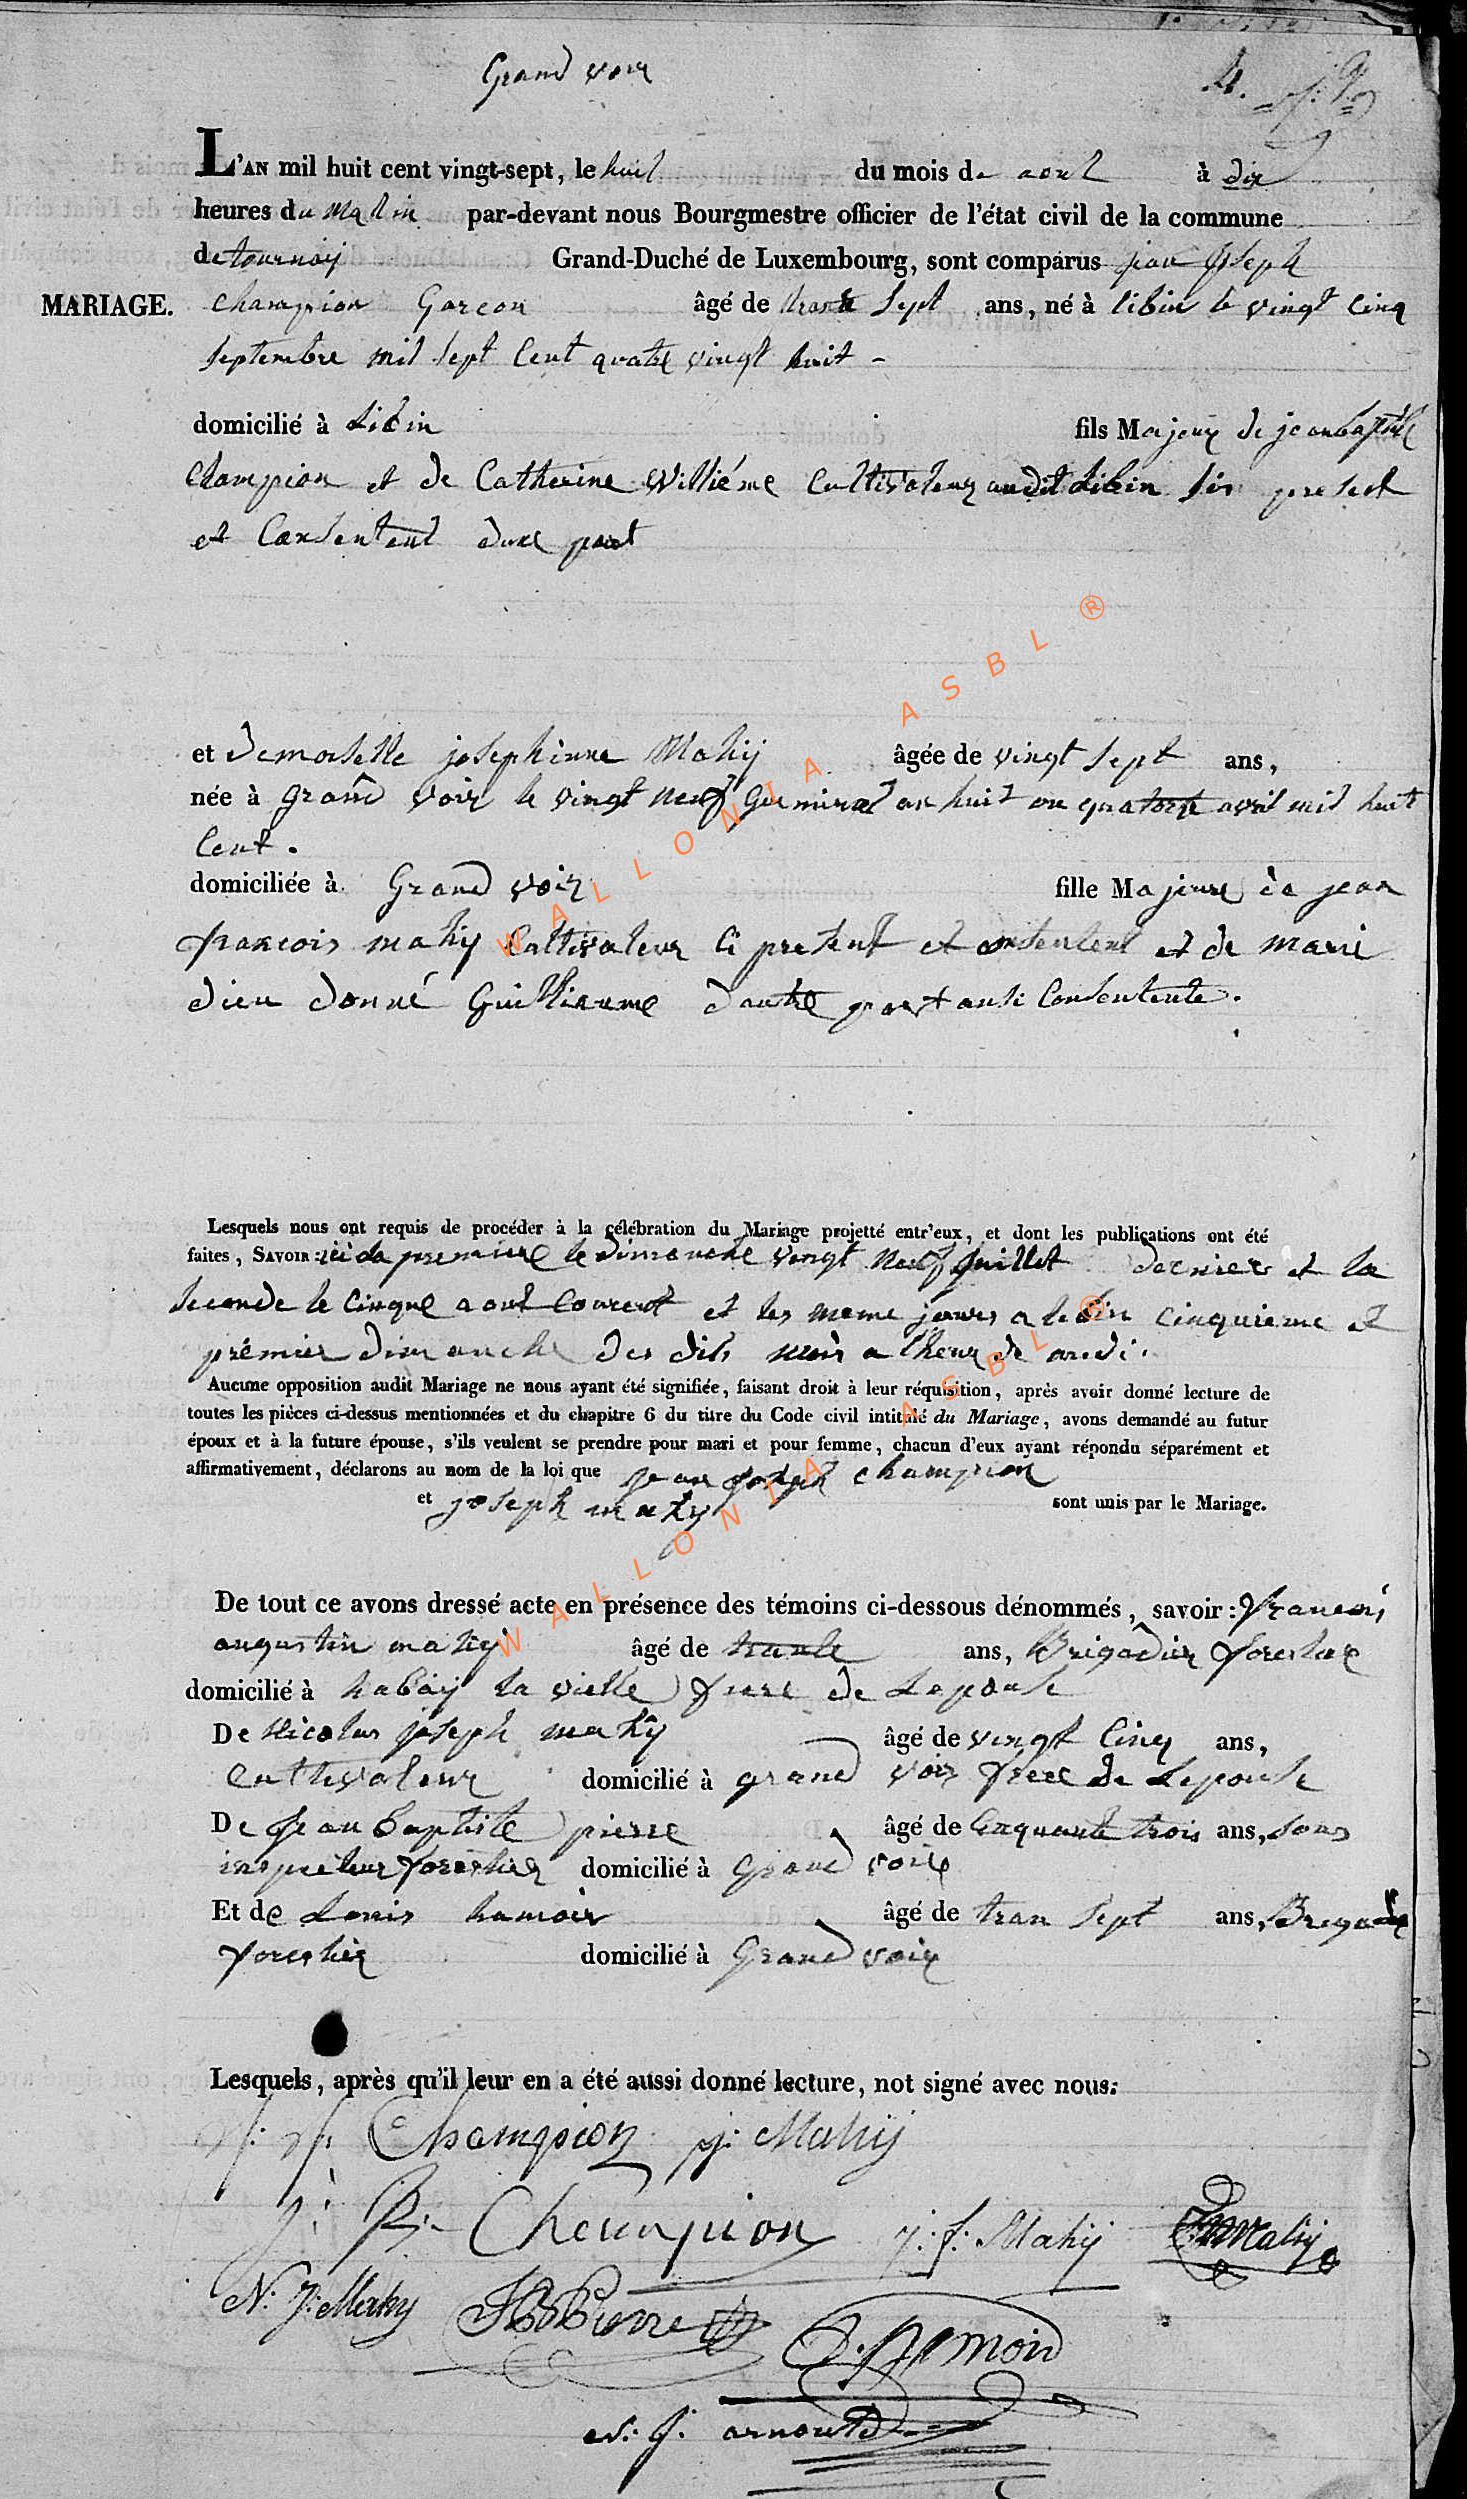 Grand voir
4.
L'AN mil huit cent vingt-sept, le huit du mois de aout à dix
heures du matin par-devant nous Bourgmestre officier de l'état civil de la commune
de tournay Grand-Duché de Luxembourg, sont comparus jean joseph
MARIAGE. champion Garcon âgé de trante sept ans, né à libin le vingt cinq
septembre mil sept Cent quatre vingt huit -
domicilié à Libin fils Majeur de jean baptiste
Champion et de Catherine Williéme Cultivateur audit Libin present
et Consentent dune part
et demoiselle josephinne Mahij âgée de vingt sept ans,
née à grand voir le vingt neuf Germinal an huit ou quatorze avril mil huit
Cent.
domiciliée à Grand voir fille Majeure de jean
francois mahij Cultivateur Ci present et consentent et de marie
dieu donné Guilliaume dautre part ausi Consentente.
Lesquels nous ont requis de procéder à la célébration du Mariage projetté entr'eux, et dont les publications ont été
faites, SAVOIR: ici la premiere le dimanche vingt neuf juillet dernier et la
seconde le cinque aout Courent et les meme jours a libin cinquieme et
prémier dimanche des dits mois a lheur de midi.
Aucune opposition audit Mariage ne nous ayant été signifiée, faisant droit à leur réquisition, après avoir donné lecture de
toutes les pièces ci-dessus mentionnées et du chapitre 6 du titre du Code civil intitulé du Mariage, avons demandé au futur
époux et à la future épouse, s'ils veulent se prendre pour mari et pour femme, chacun d'eux ayant répondu séparément et
affirmativement, déclarons au nom de la loi que jean joseph champion
et joseph mahij sont unis par le Mariage.
De tout ce avons dressé acte en présence des témoins ci-dessous dénommés, savoir: francois
augustin mahij âgé de trante ans, Brigadier forestier
domicilié à habaij la vielle frere de Lepouse
De Nicolas joseph mahij âgé de vingt Cinq ans,
Cultivateur domicilié à grand voir frere de Lepouse
De jean baptiste pierre âgé de Cinquante trois ans, sous
inspecteur forestier domicilié à Grand voir
Et de Louis hamoir âgé de tran sept ans, Brigadie
forestier domicilié à Grand voir
Lesquels, après qu'il leur en a été aussi donné lecture, not signé avec nous:
j: j: Champion j: Mahij
j: B: Champion j: f: Mahij Mahij
N: J: Mahy JB Pierre
arnould
WALLONIA ASBL ®
WALLONIA ASBL ®